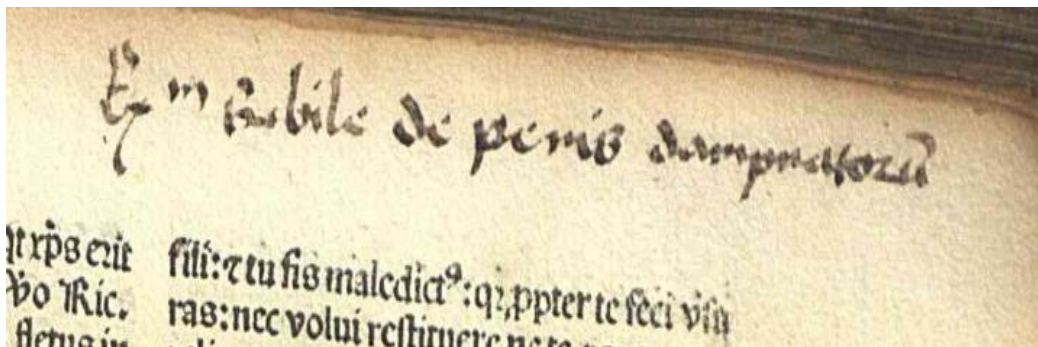 Exm̄ flebile de penis dampnatorū
qt xp̄s erit
Vo Ric.
fletus in
fili: ⁊ tu fis maledictꝰ: qꝛ ꝓpter te feci vsu
ras: nec volui restituere ne te